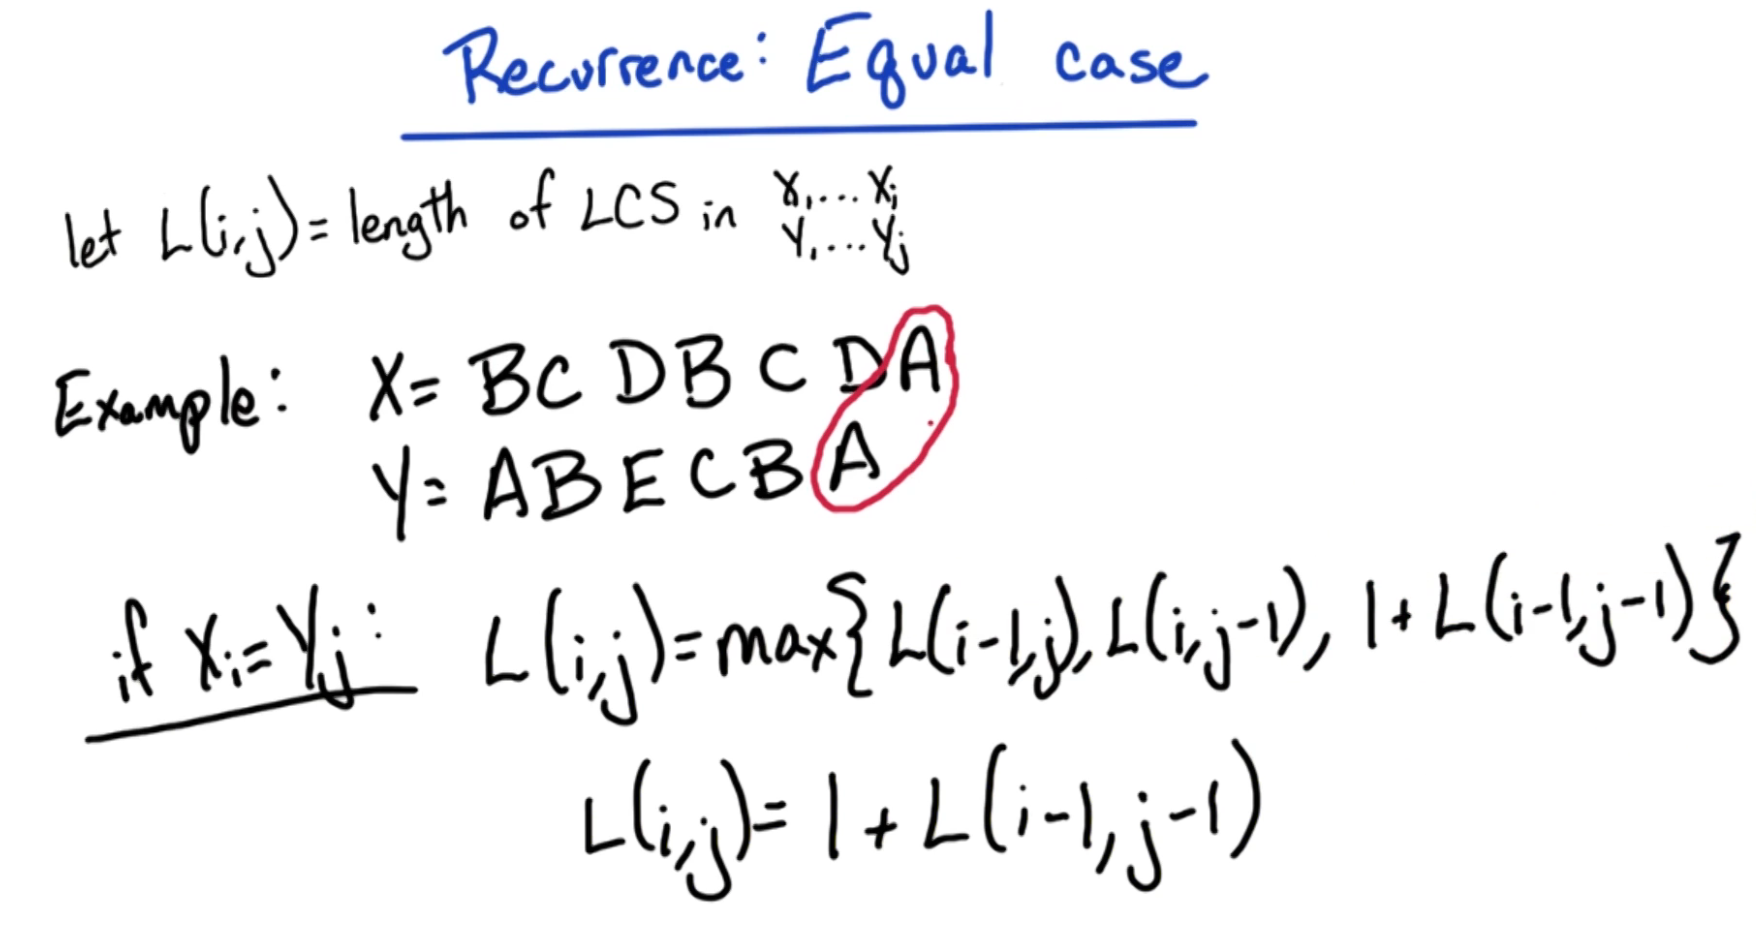 Recurrence: Equal case
let L(i,j) = length of LCS in X₁...Xᵢ
Y₁...Yⱼ
Example: X = BCDBCDA
Y = ABECBA
if Xᵢ = Yⱼ: L(i,j) = max{L(i-1,j), L(i,j-1), 1 + L(i-1,j-1)}
L(i,j) = 1 + L(i-1,j-1)